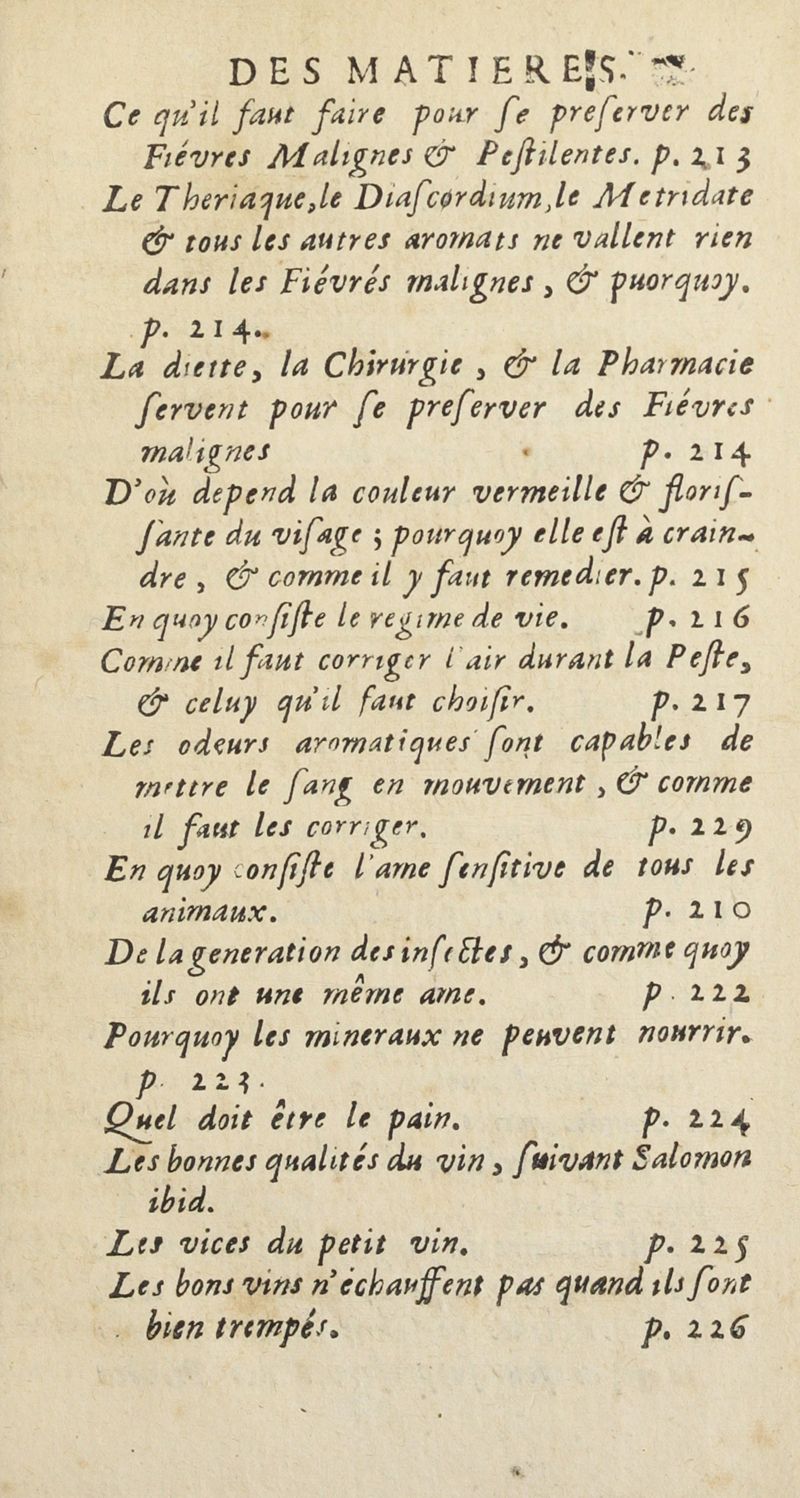 DES MATIERES.
Ce qu'il faut faire pour ſe preſerver des
Fiévres Malignes & Peſtilentes. p. 213
Le Theriaque,le Diaſcordium,le Metridate
& tous les autres aromats ne vallent rien
dans les Fiévrés malignes , & puorquoy.
p. 214.
La diette, la Chirurgie , & la Pharmacie
ſervent pour ſe preſerver des Fiévres
malignes p. 214
D'où depend la couleur vermeille & floriſ-
ſante du viſage ; pourquoy elle eſt à crain-
dre , & comme il y faut remedier. p. 215
En quoy conſiſte le regime de vie. p. 216
Comme il faut corriger l'air durant la Peſte,
& celuy qu'il faut choiſir. p. 217
Les odeurs aromatiques ſont capables de
mettre le ſang en mouvement , & comme
il faut les corriger. p. 229
En quoy conſiſte l'ame ſenſitive de tous les
animaux. p. 210
De la generation des inſectes , & comme quoy
ils ont une même ame. p. 222
Pourquoy les mineraux ne peuvent nourrir.
p. 223.
Quel doit être le pain. p. 224
Les bonnes qualités du vin , ſuivant Salomon
ibid.
Les vices du petit vin. p. 225
Les bons vins n'échauffent pas quand ils ſont
bien trempés. p. 226